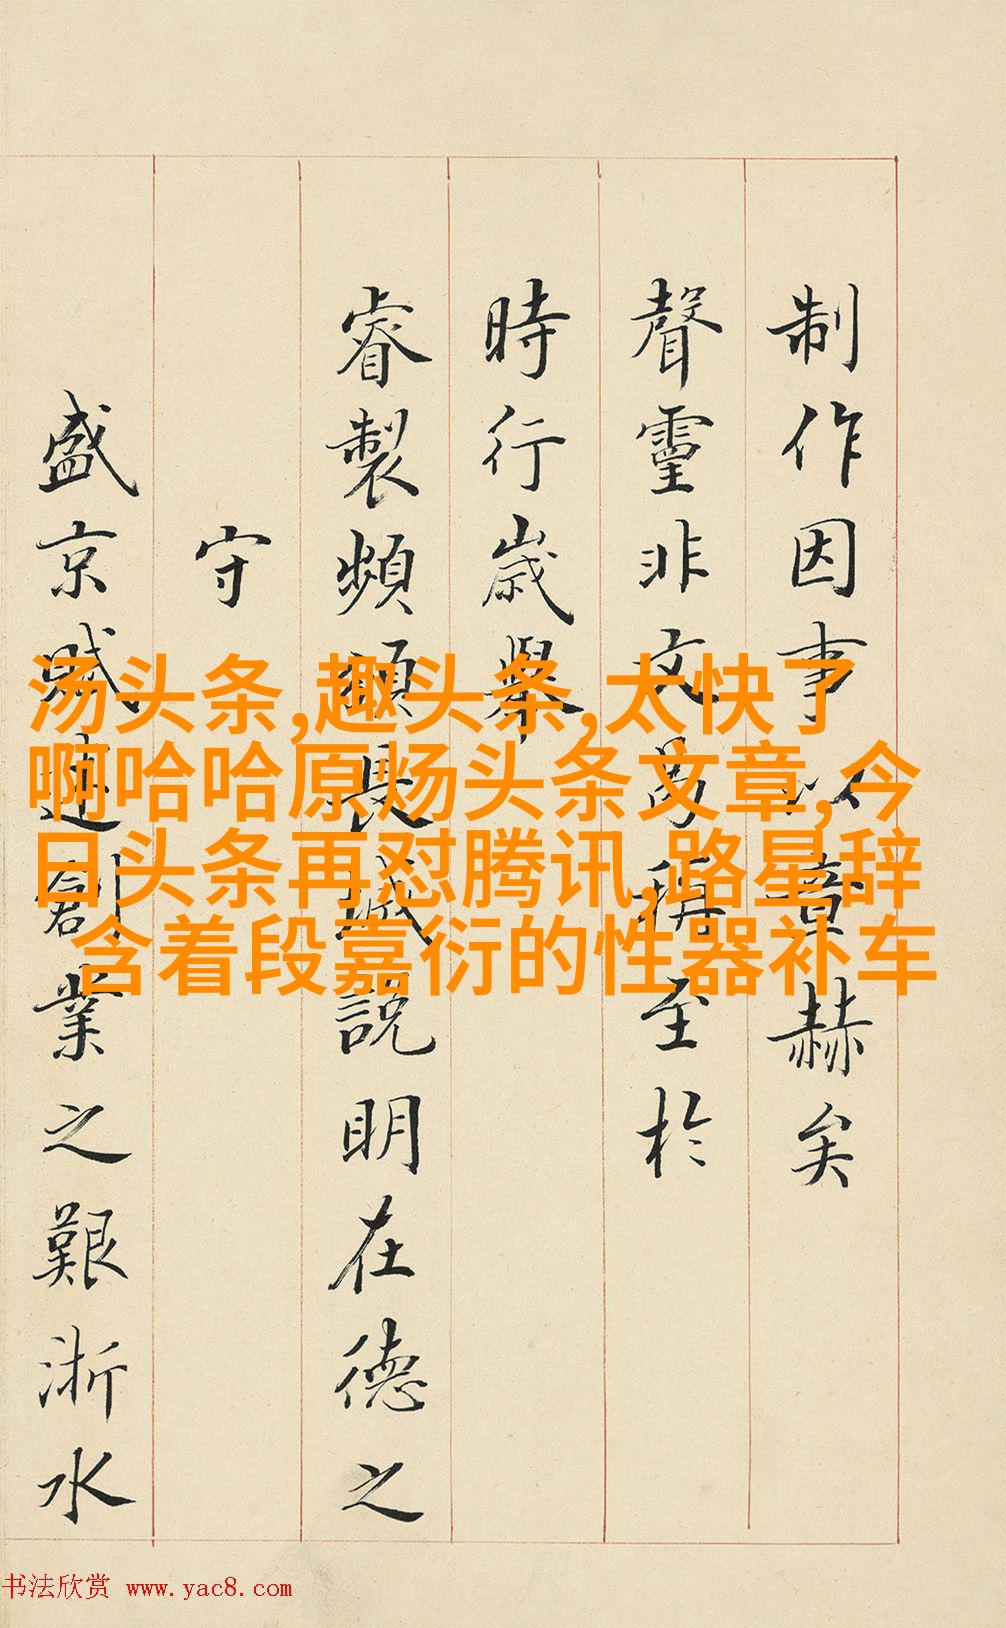 制作因事以章赫矣
聲靈非文曷稱至於
時行歲舉
睿製頻頒長誠說明在德之
守
盛京賦述創業之艱浙水
汤头条,趣头条,太快了
啊哈哈原炀头条文章,今
日头条再怼腾讯,路星辞
含着段嘉衍的性器补车
书法欣赏 www.yac8.com